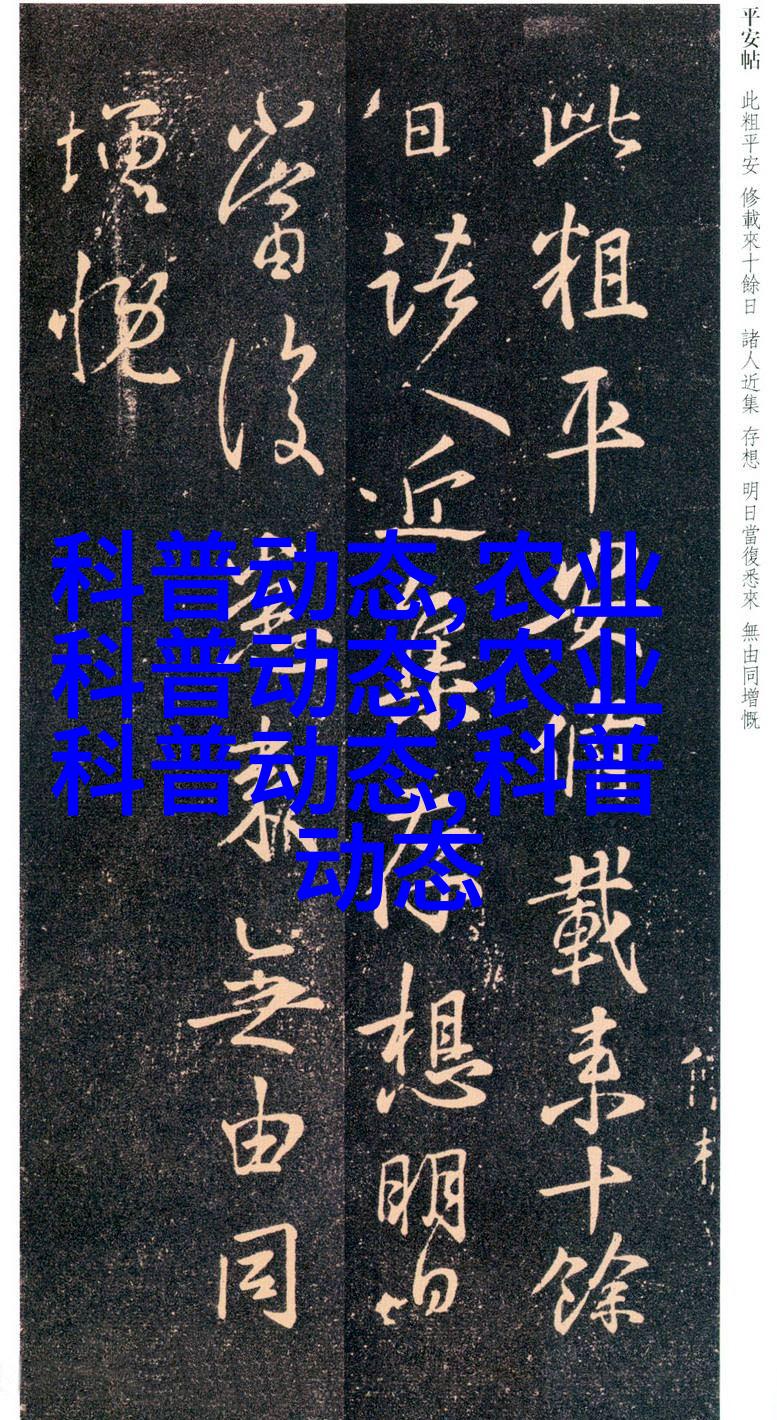 平安帖 此粗平安 修載來十餘日 諸人近集 存想 明日當復悉來 無由同增慨
此粗平安修載来十餘
日諸人近集存想明日
當復悉來無由同
增慨
科普动态,农业
科普动态,农业
科普动态,科普
动态